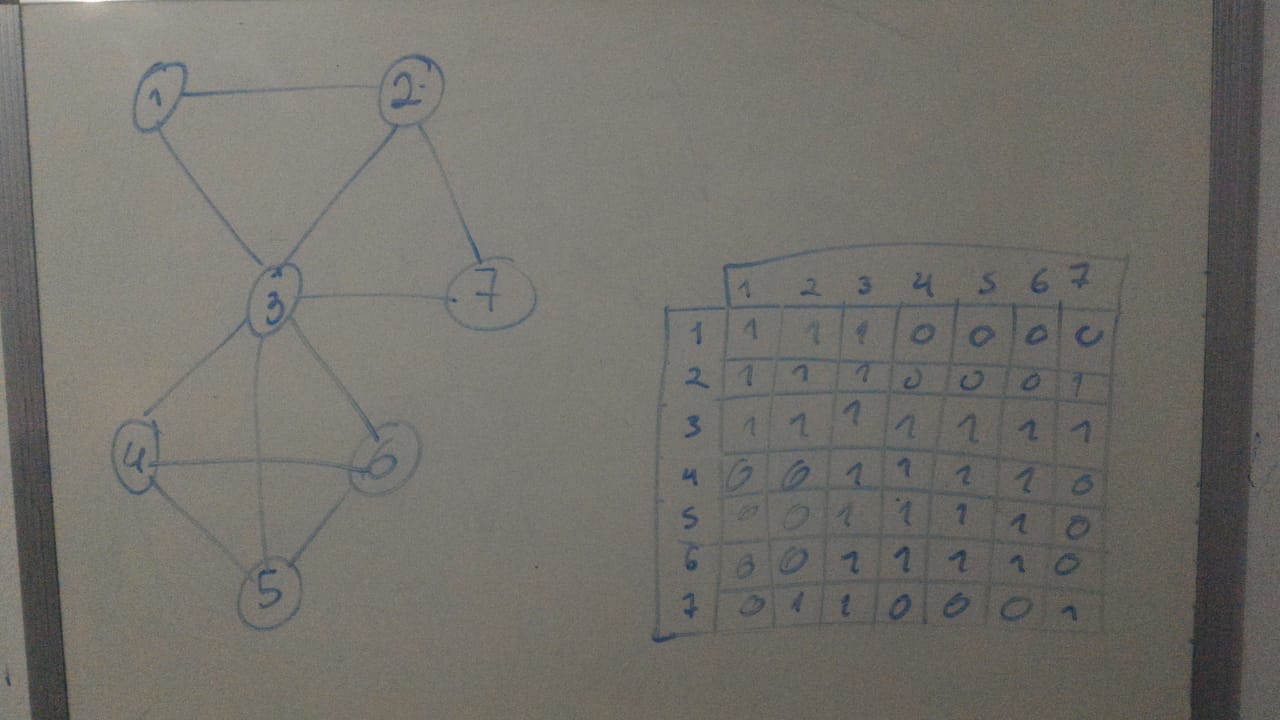 1 2
3 7
4 6
5
1 2 3 4 5 6 7
1 1 1 1 0 0 0 0
2 1 1 1 0 0 0 1
3 1 1 1 1 1 1 1
4 0 0 1 1 1 1 0
5 0 0 1 1 1 1 0
6 0 0 1 1 1 1 0
7 0 1 1 0 0 0 1